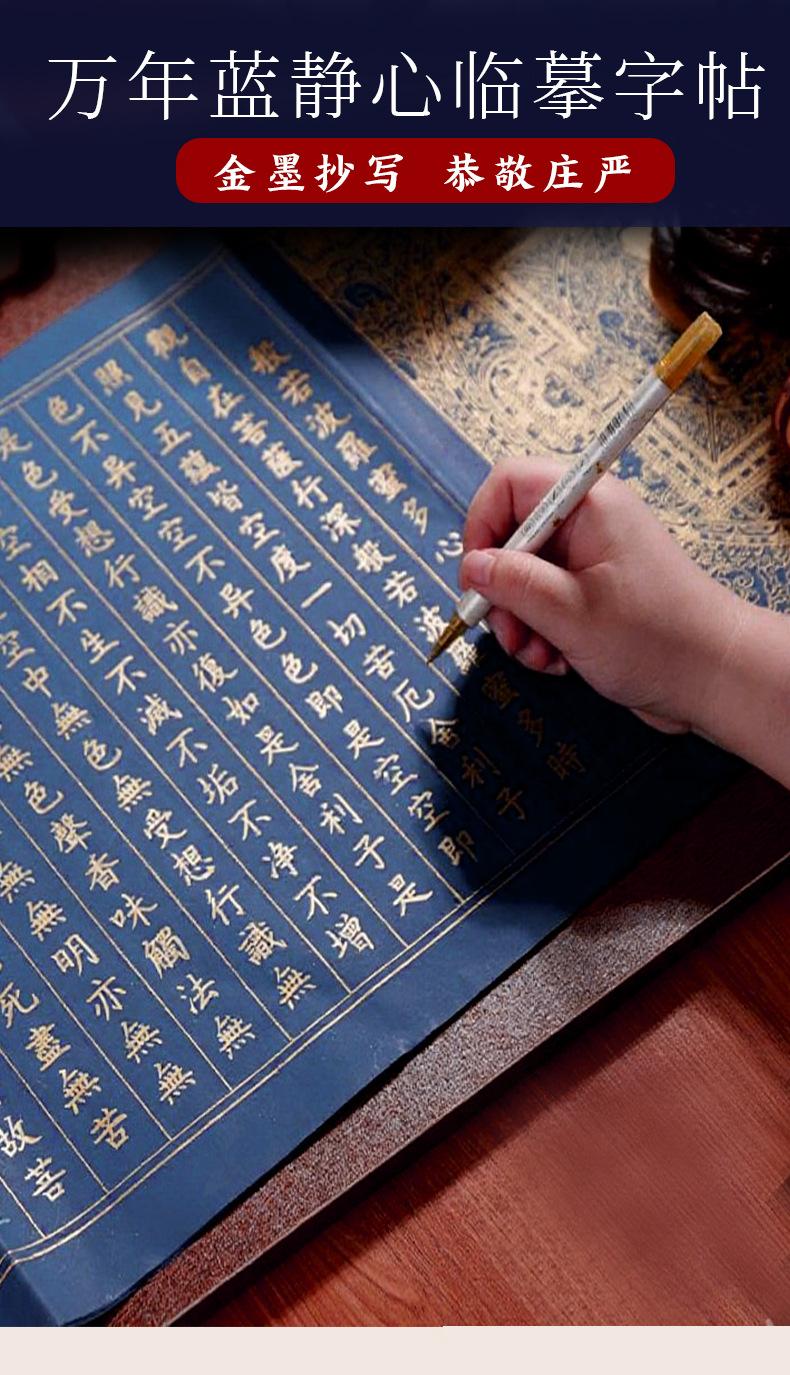 万年蓝静心临摹字帖
金墨抄写 恭敬庄严
般若波羅蜜多心
觀自在菩薩行深般若波羅蜜多時
照見五蘊皆空度一切苦厄舍利子
色不异空空不异色色即是空空即
是色受想行識亦復如是舍利子是
空相不生不滅不垢不净不增
空中無色無受想行識無
無色聲香味觸法無
無無明亦無無
死盡無苦
故菩